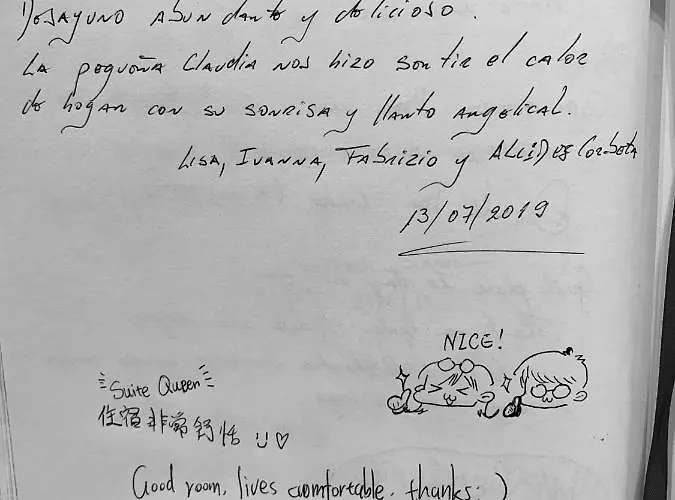 Desayuno abundante y delicioso.
La pequeña Claudia nos hizo sentir el calor
de hogar con su sonrisa y llanto angelical.
Lisa, Ivanna, Fabrizio y Alcides
13/07/2019
NICE!
Suite Queen
住宿非常舒恬
Good room, lives comfortable. thanks:)